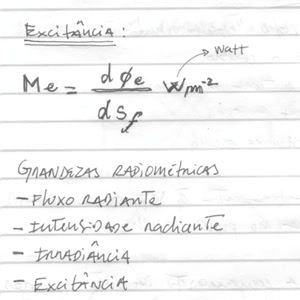 Excitância:
watt
Me = dϕe / dSf Wm⁻²
GRANDEZAS RADIOMÉTRICAS
- FLUXO RADIANTE
- INTENSIDADE radiante
- IRRADIÂNCIA
- EXCITÂNCIA